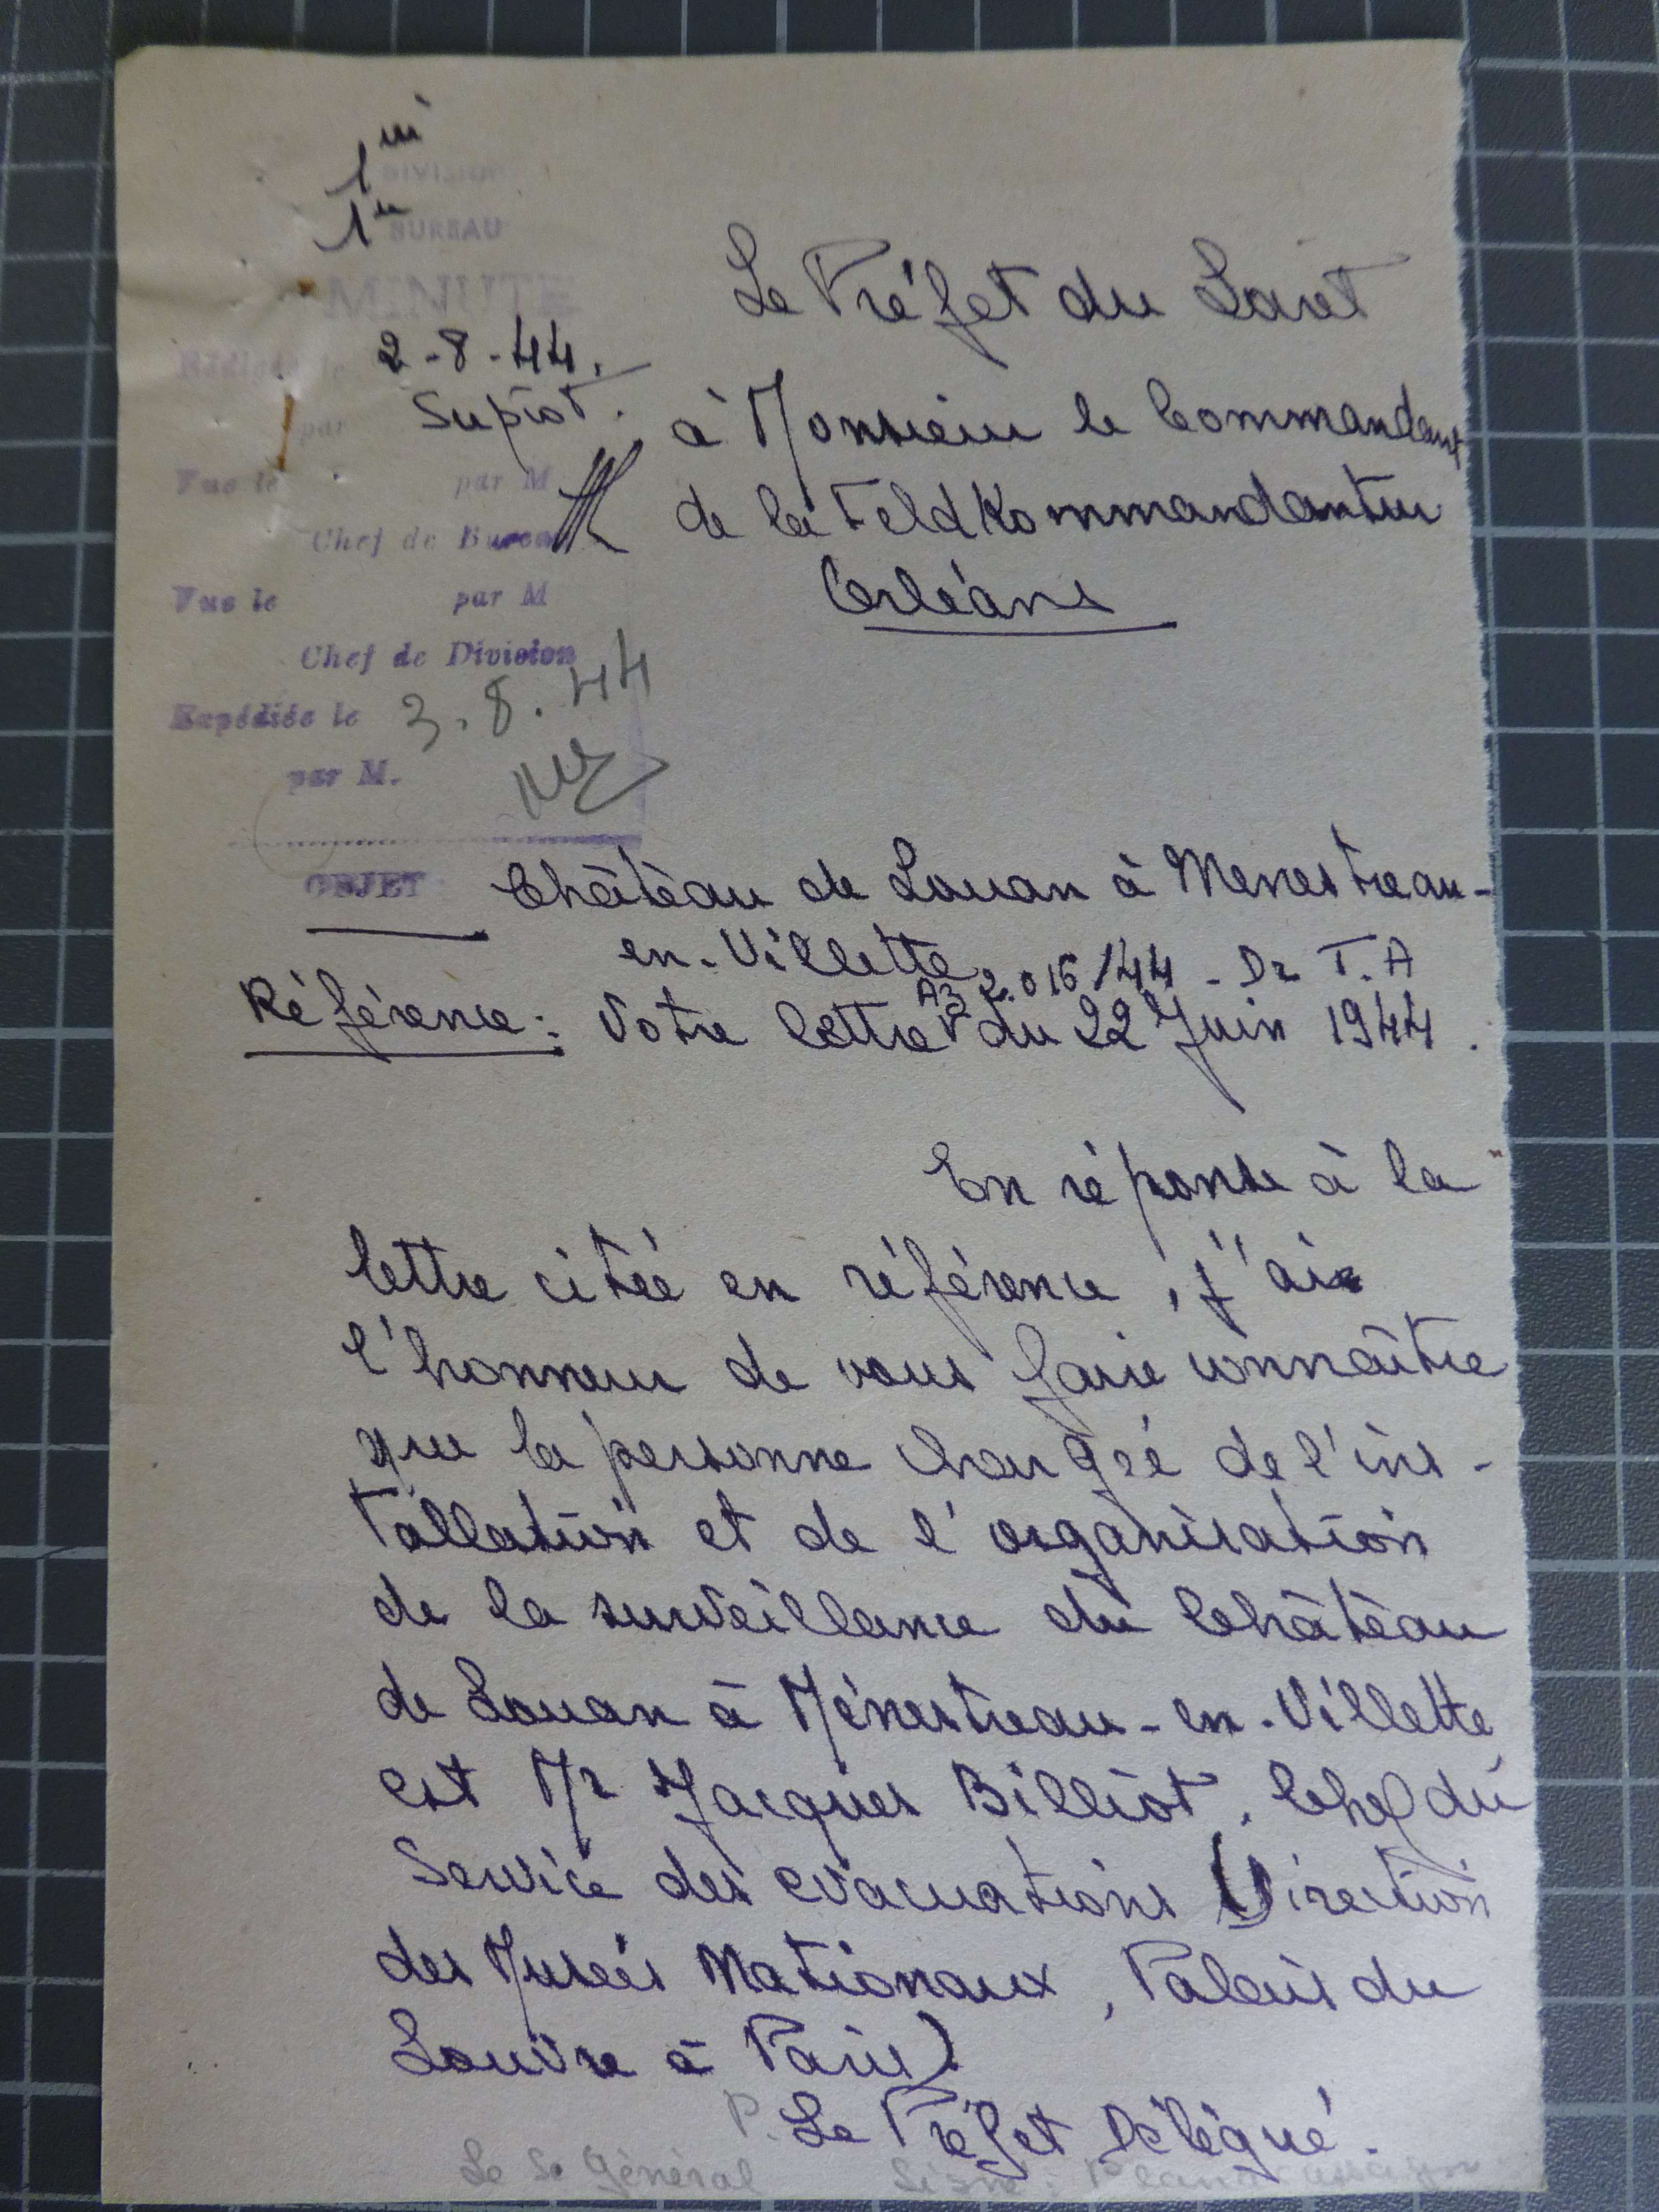 1ère DIVISION
1er BUREAU
MINUTE
Rédigée le 2-8-44.
par Supiot.
Vue le par M
Chef de Bureau
Vue le par M
Chef de Division
Expédiée le 3.8.44
par M.
Le Préfet du Loiret
à Monsieur le Commandant
de la Feldkommandantur
Orléans
OBJET Château de Louan à Menestreau-
en-Villette
Az 2.016/44 - Dr T.A
Référence : Votre lettre du 22 Juin 1944.
En réponse à la
lettre citée en référence, j'ai
l'honneur de vous faire connaître
que la personne chargée de l'ins-
tallation et de l'organisation
de la surveillance du Château
de Louan à Ménestreau-en-Villette
est Mr Jacques Billiot, Chef du
Service des evacuations (Direction
des Musées Nationaux, Palais du
Louvre à Paris)
P. Le Préfet Délégué.
Le S. Général Signé :